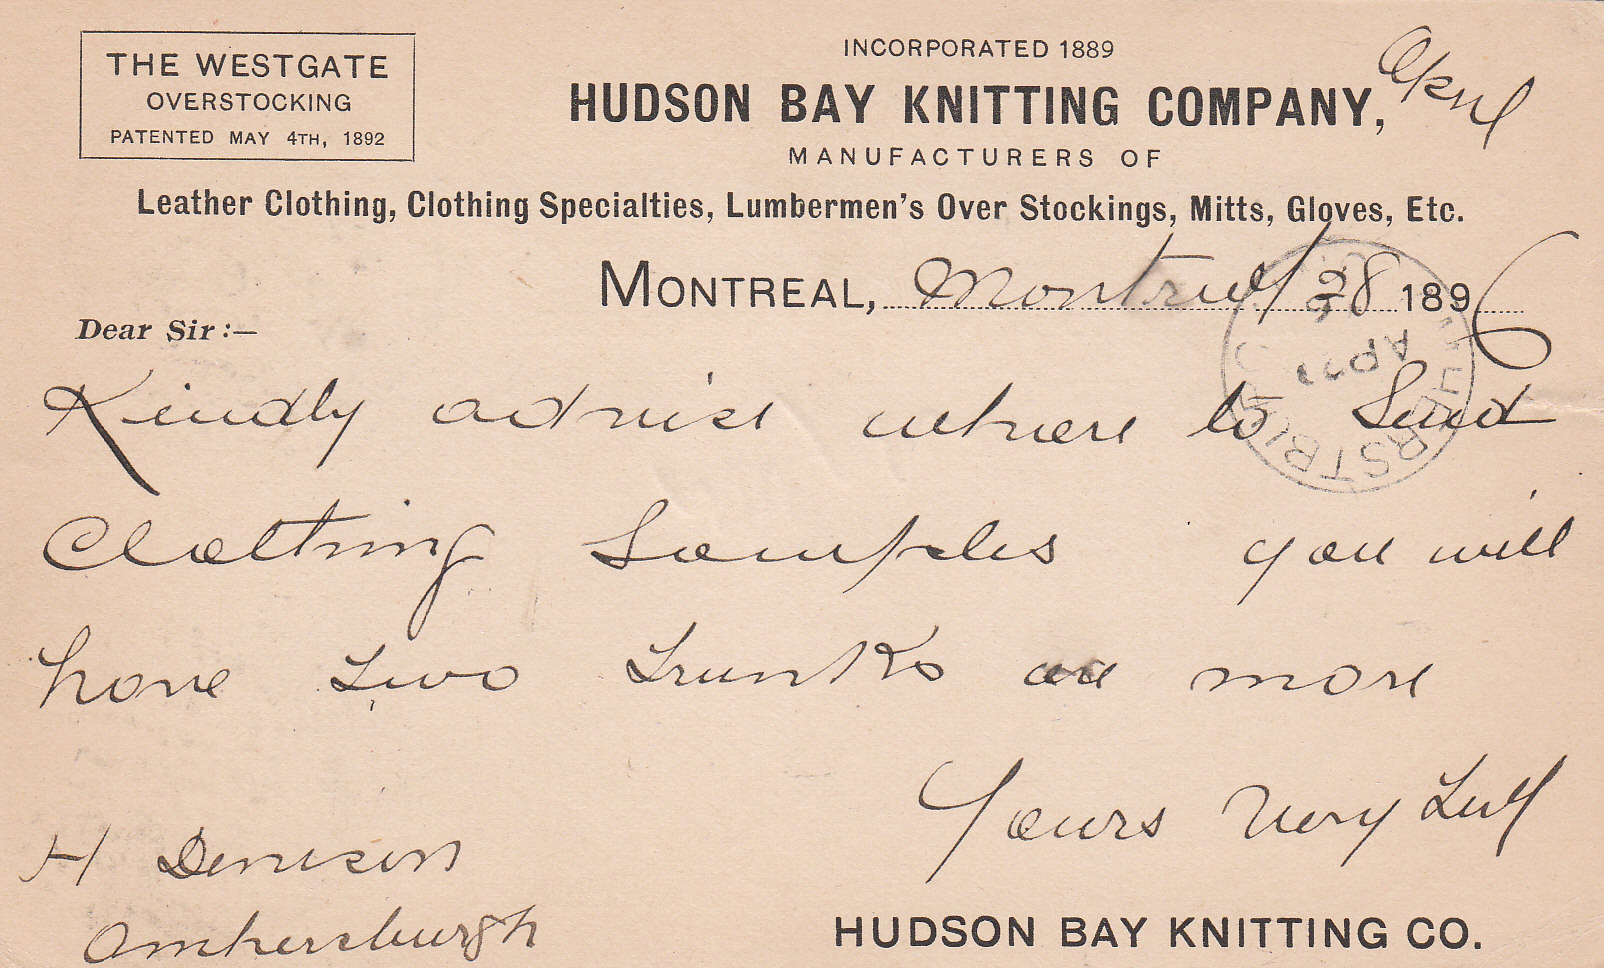 THE WESTGATE
OVERSTOCKING
PATENTED MAY 4TH, 1892
INCORPORATED 1889
HUDSON BAY KNITTING COMPANY,
April
MANUFACTURERS OF
Leather Clothing, Clothing Specialties, Lumbermen's Over Stockings, Mitts, Gloves, Etc.
MONTREAL, Montreal 28 1896
Dear Sir:—
Kindly advise where to Send
Clothing Samples you will
have two trunks or more
Yours Very Truly
H Denison
Amherstburgh
HUDSON BAY KNITTING CO.